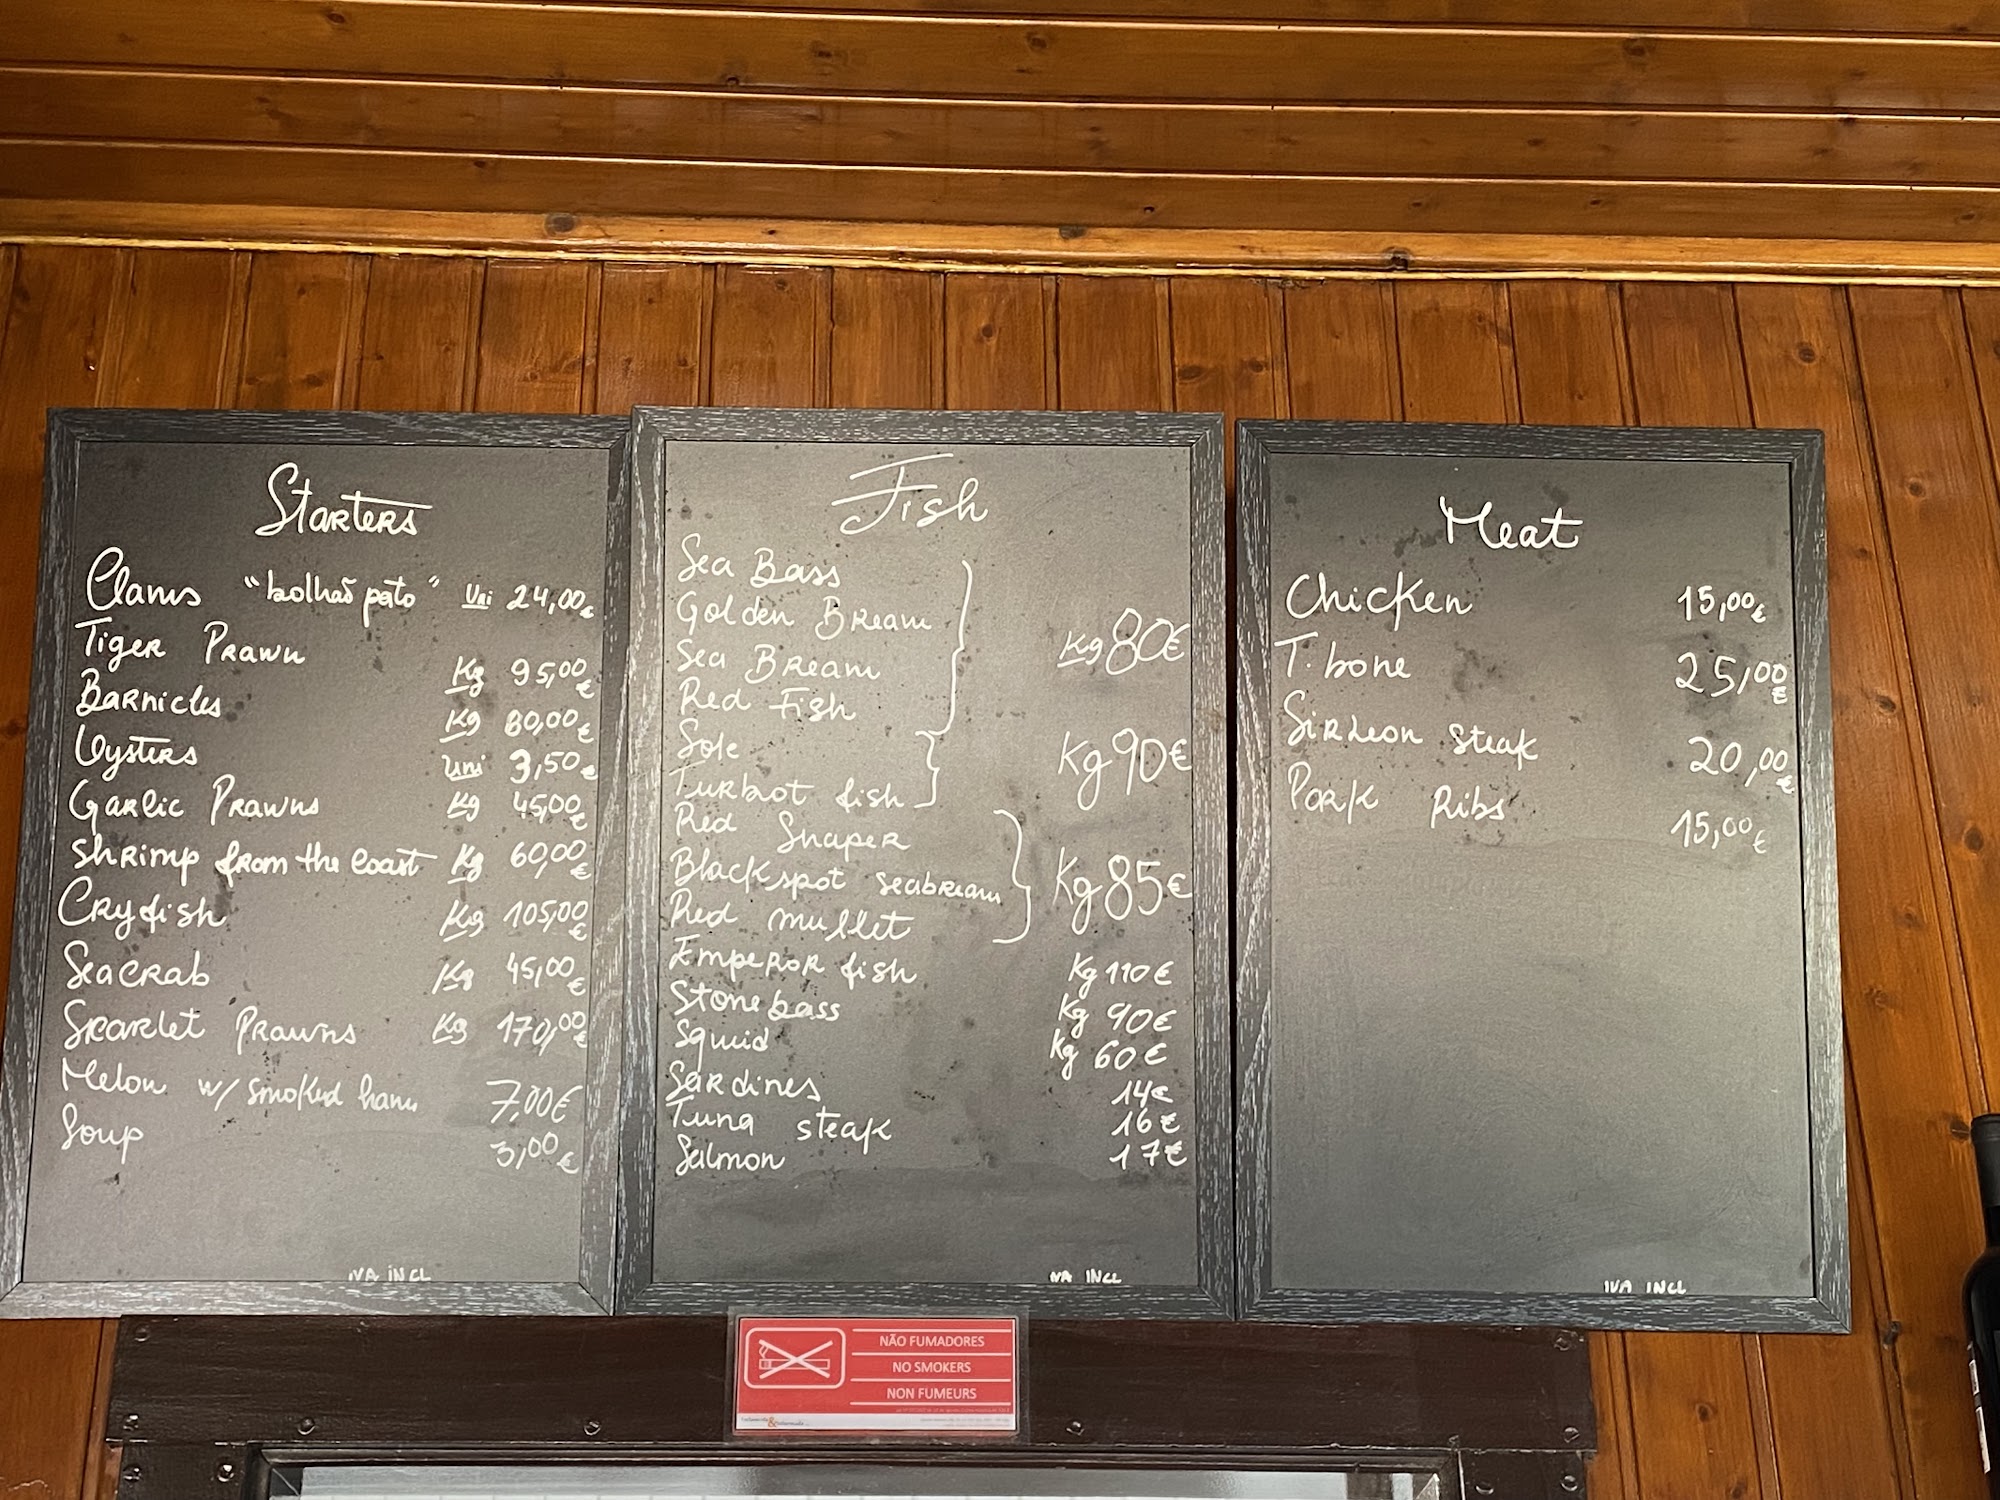 Starters
Clams "bolhão pato" Uni 24,00€
Tiger Prawn Kg 95,00€
Barnicles Kg 80,00€
Oysters Uni 3,50€
Garlic Prawns Kg 45,00€
Shrimp from the Coast Kg 60,00€
Cryfish Kg 105,00€
Seacrab Kg 45,00€
Scarlet Prawns Kg 170,00€
Melon w/ smoked ham 7,00€
Soup 3,00€
IVA INCL
Fish
Sea Bass
Golden Bream
Sea Bream
Red Fish
Kg 80€
Sole
Turbot fish
Kg 90€
Red Snaper
Blackspot seabream
Red mullet
Kg 85€
Emperor fish Kg 110€
Stonebass Kg 90€
Squid Kg 60€
Sardines 14€
Tuna steak 16€
Salmon 17€
IVA INCL
Meat
Chicken 15,00€
T.bone 25,00€
Sirleon steak 20,00€
Pork Ribs 15,00€
IVA INCL
NÃO FUMADORES
NO SMOKERS
NON FUMEURS